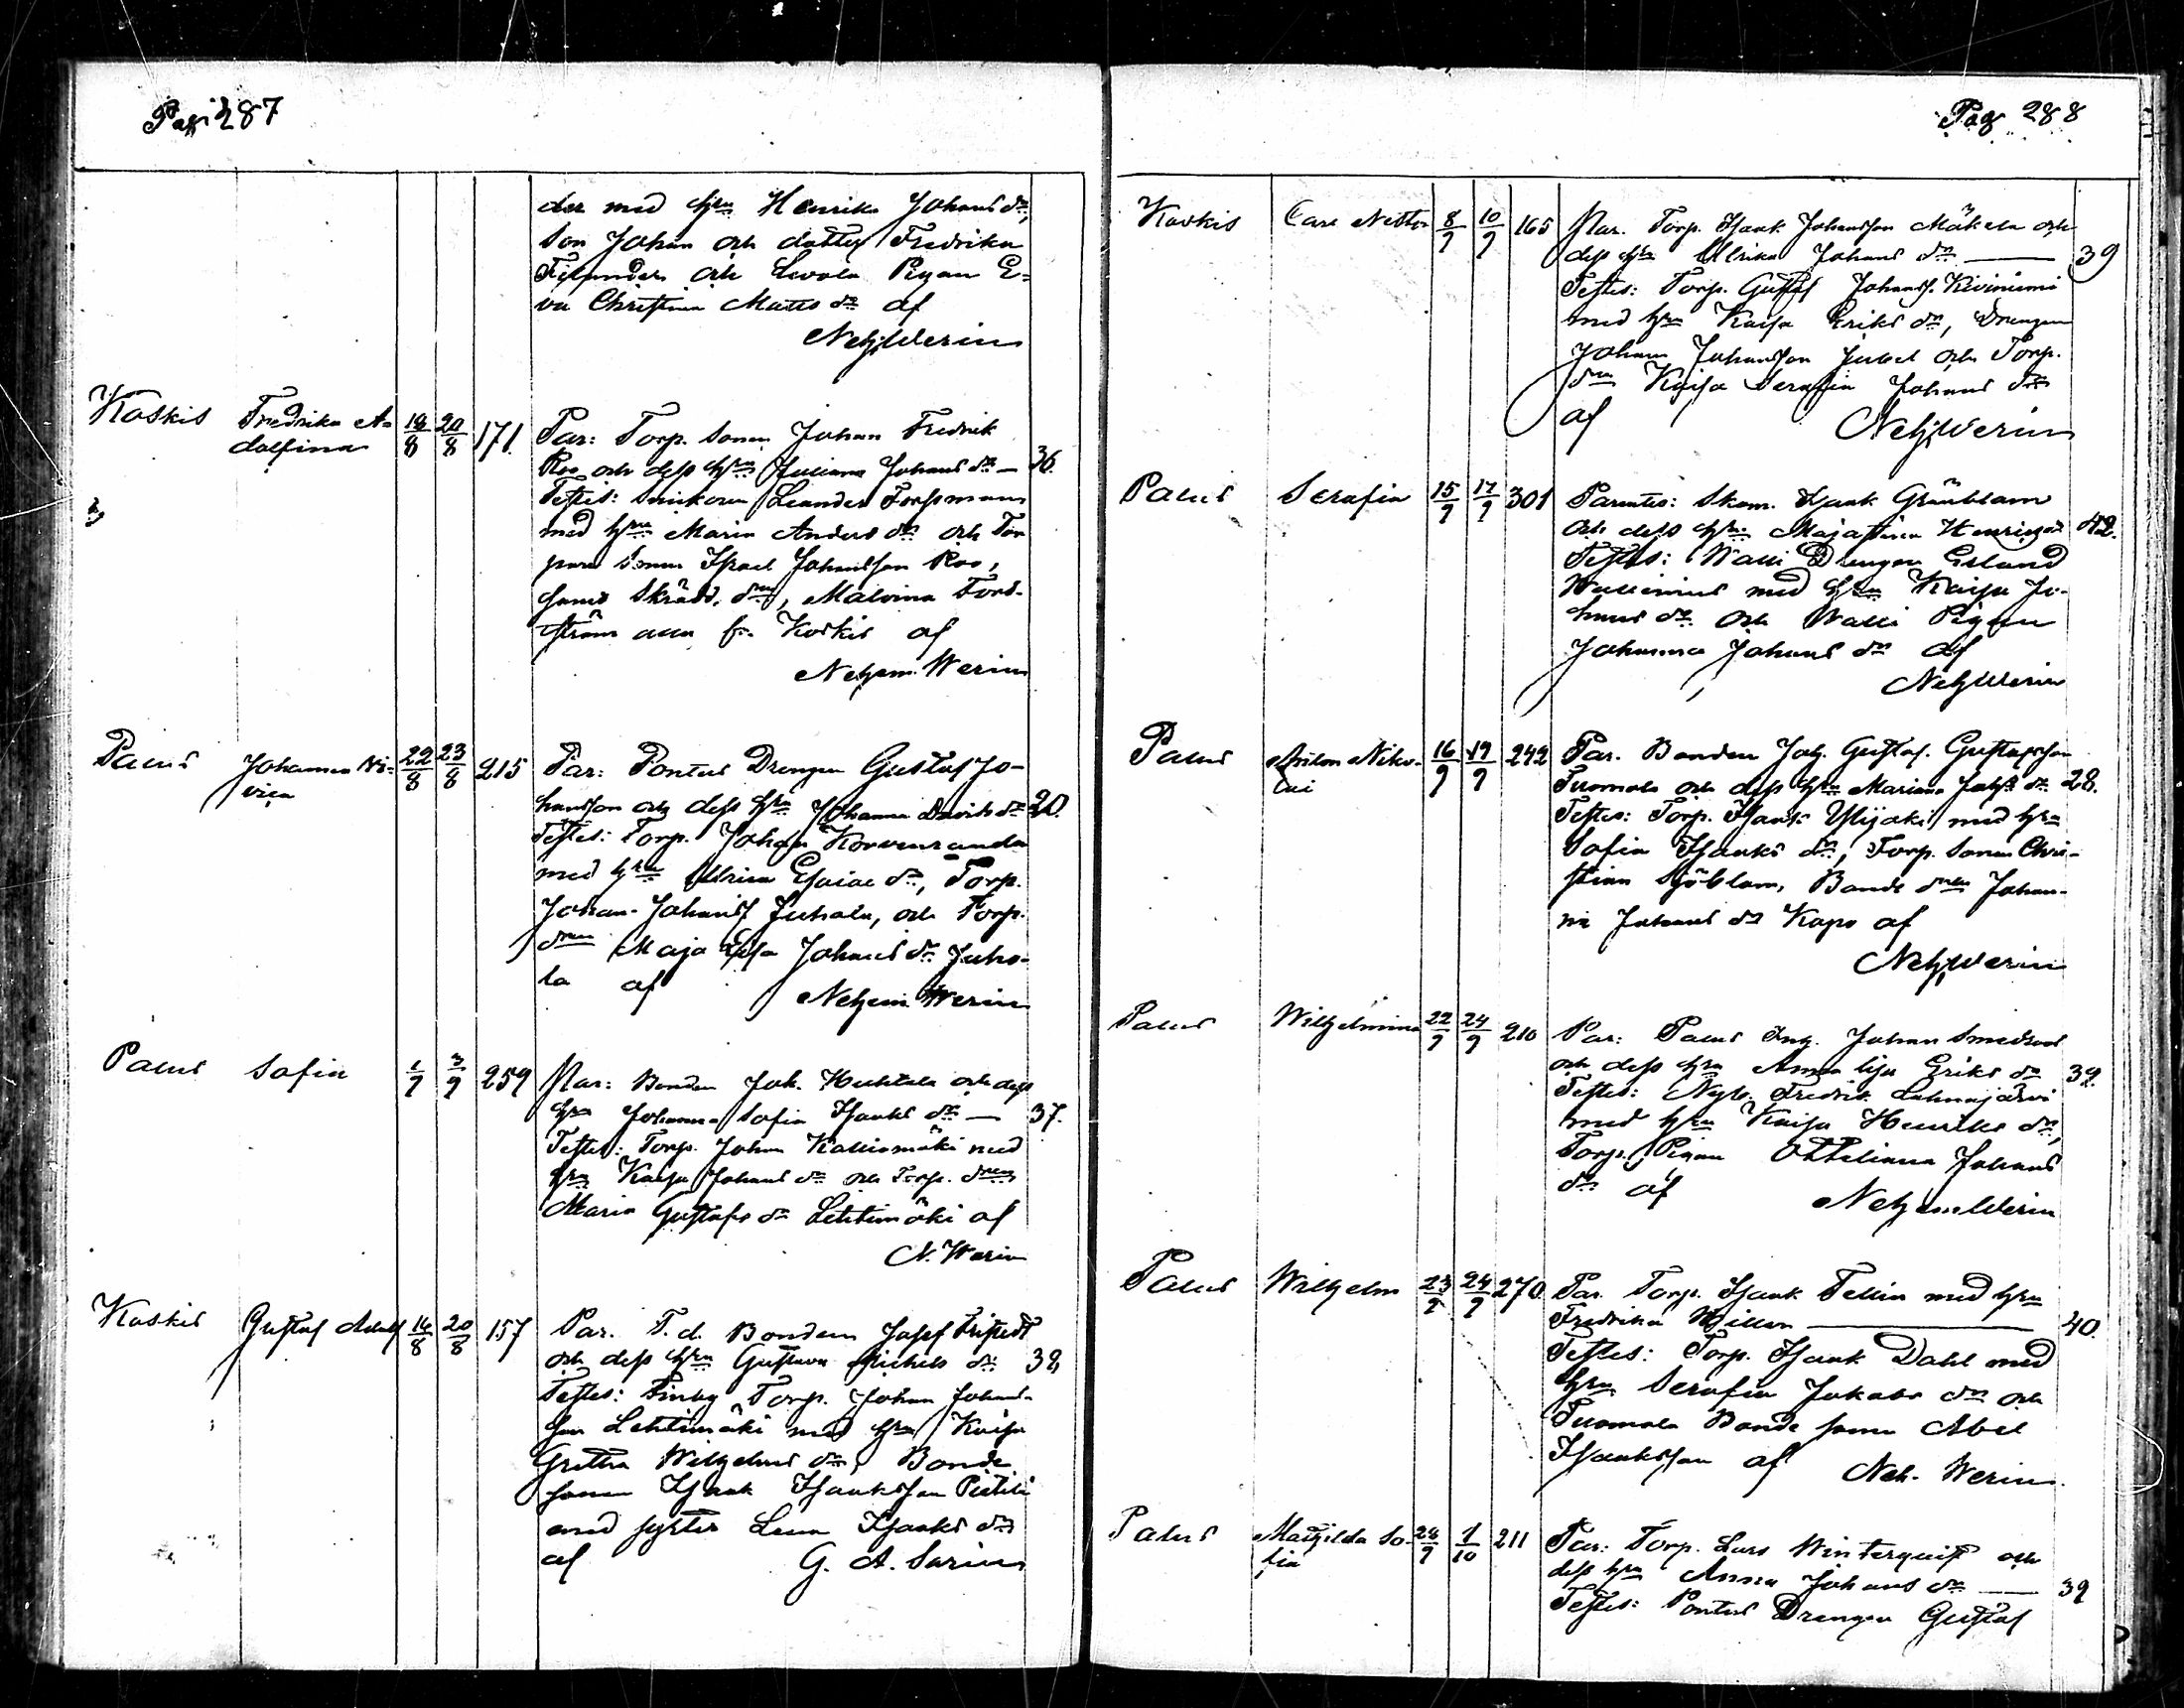 Pag 287
der med hru Henrika Johans dr,
son Johan och dotter Fredrika
och Pigan E=
va Christina Matts dr af
Nehj Werin
Koskis Fredrika A= 18/8 20/8 171. Par: Torp. sonen Johan Fredrik
dolfina Roo och dess hru Juliana Johans dr — 36.
Testes: Leander Forssman
med hru Maria Anders dr och Tor
pare sonen Israel Johansson Roo,
samt Skrädd. drn, Malvina Fors-
ström alla fr. Koskis af
Nehem. Werin
Palus Johanna 22/8 23/8 215 Par: Pontus Drengen Gustaf Jo-
hansson och dess hru Johanna Davids dr 20.
Testes: Torp. Johan Korvenranda
med hru Ulrica Esaias dr, Torp.
Johan Johanss Juhola, och Torp.
drn Maja Johans dr Juho-
la af Nehem Werin
Palus Sofia 1/9 3/9 259 Par: Bonden Joh. Huhtala och dess
hru Johanna Sofia Isaaks dr — 37.
Testes: Torp. Johan Kalliomäki med
hru Kaisa Johans dr och Torp. drn
Maria Gustafs dr Lehtimäki af
N. Werin
Koskis Gustaf Adolf 16/8 20/8 157 Par. T.d. Bonden Josef
och dess hru Gustava Michels dr 38
Testes: Finby Torp. Johan Johans-
son Lehtimäki med hru Kaisa
Gretha Wilhelms dr, Bonde
sonen Isaak Isaaksson Pietilä
med syster Lena Isaaks dr
af G. A. Sarin
Pag 288
Koskis Carl Nestor 8/9 10/9 165 Par. Torp. Isaak Johansson Mäkelä och
dess hru Ulrika Johans dr — 39
Testes: Torp. Gustaf Johanss. Kiviniemi
med hru Kaisa Eriks dr, Drengen
Johan Johansson och Torp.
drn Kaisa Serafia Johans dr
af Nehj Werin
Palus Serafia 15/9 17/9 301 Parentes: Skom. Isaak Grönblom
och dess hru Majastina Henriks dr 42.
Testes: Walli Drengen Erland
Wallenius med hru Kaisa Jo-
hans dr och Walli Pigan
Johanna Johans dr af
Nehj Werin
Palus Anton Niko- 16/9 19/9 242 Par. Bonden Joh. Gustaf. Gustafsson
lai Tuomola och dess hru Mariana Johs dr 28.
Testes: Torp. Isaak Ylijoki med hru
Sofia Isaaks dr, Torp. sonen Chri-
stian Sjöblom, Bonde drn Johan-
na Johans dr Kapo af
Nehj Werin
Palus Wilhelmina 22/9 24/9 210 Par: Palus Inh. Johan
och dess hru Anna Lisa Eriks dr 39.
Testes: Nyb. Fredrik Lehmajärvi
med hru Kaisa Henriks dr,
Torp. Pigan Ottiliana Johans
dr af Nehem Werin
Palus Wilhelm 23/9 24/9 270. Par. Torp. Isaak Tellin med hru
Fredrika — 40.
Testes: Torp. Isaak Dahl med
hru Serafia Jakobs dr och
Tuomola Bonde sonen Abel
Isaaksson af Neh. Werin.
Palus Mathilda So- 24/9 1/10 211 Par: Torp. Lars Winterquist och
fia dess hru Anna Johans dr — 39
Testes: Pontus Drengen Gustaf